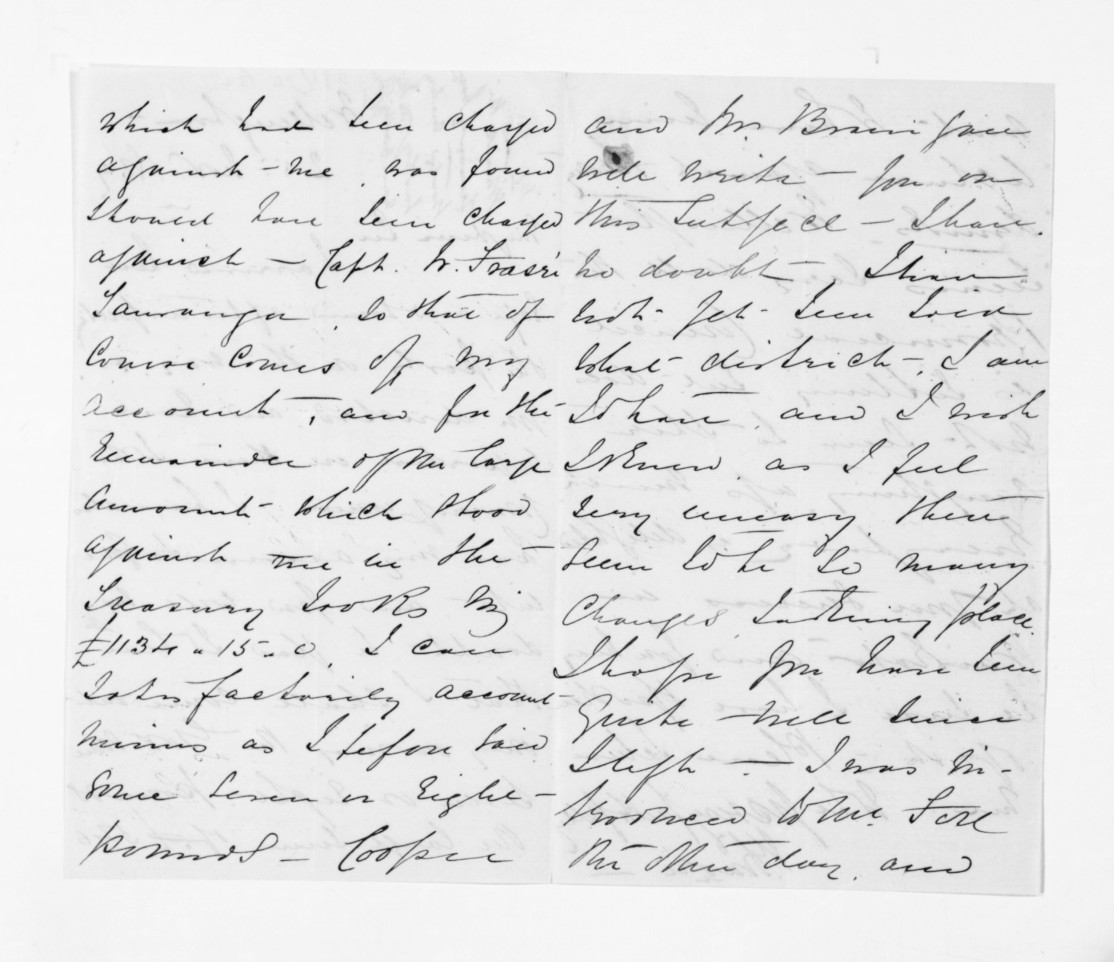 which had been charged
against - me was found
should have been charged
against - Capt. W. Fraser
Tauranga, so that of
course comes off my
account, and for the
remainder of the large
amount which stood
against me in the
Treasury books viz
£1134 " 15 " 0, I can
satisfactorily account
minus as I before said
some seven or eight -
pounds - Cooper
and Mr. Bram
will write - you on
this subject - I have
no doubt - I have
not - yet - been told
what - district - I am
to have, and I wish
I knew as I feel
very uneasy there
seem to be so many
changes taking place.
I hope you have been
quite well since
I left - I was in-
troduced to Mr.
the other day, and